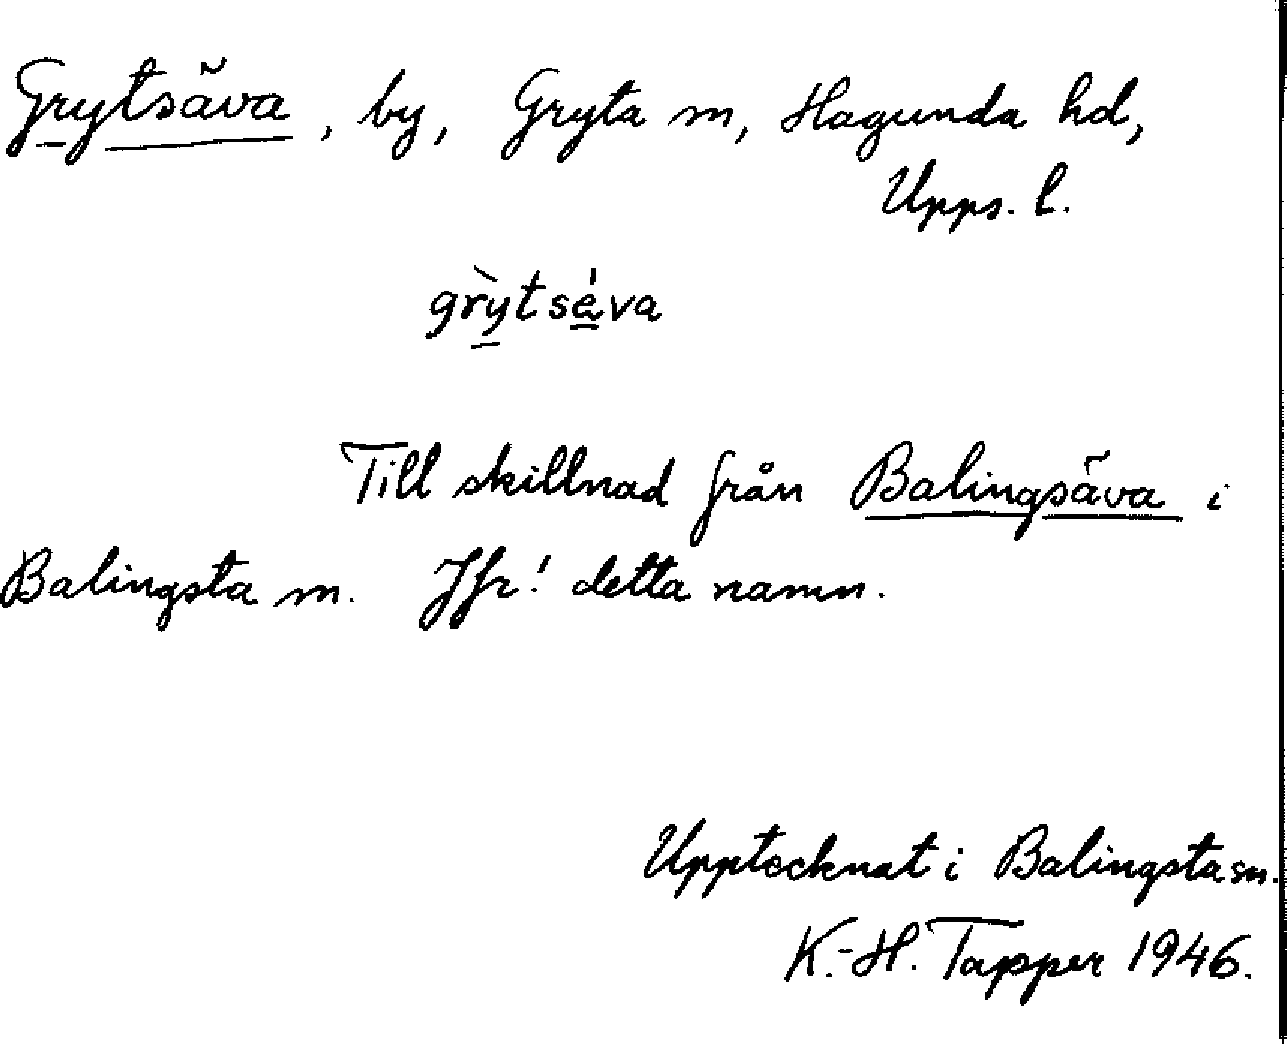 Grytsäva, by, Gryta sn, Hagunda hd,
Upps. l.
grỳtséva
Till skillnad från Balingsäva i
Balingsta sn. Jfr! detta namn.
Upptecknat i Balingsta sn.
K.-H. Tapper 1946.